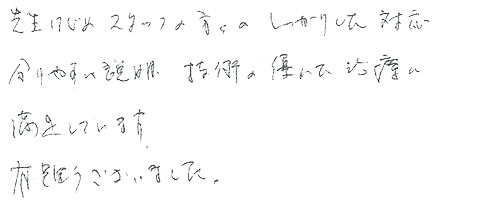 先生はじめ スタッフの方々の しっかりした 対応
分りやすい説明 技術の優れた 治療に
満足しています。
有難うございました。